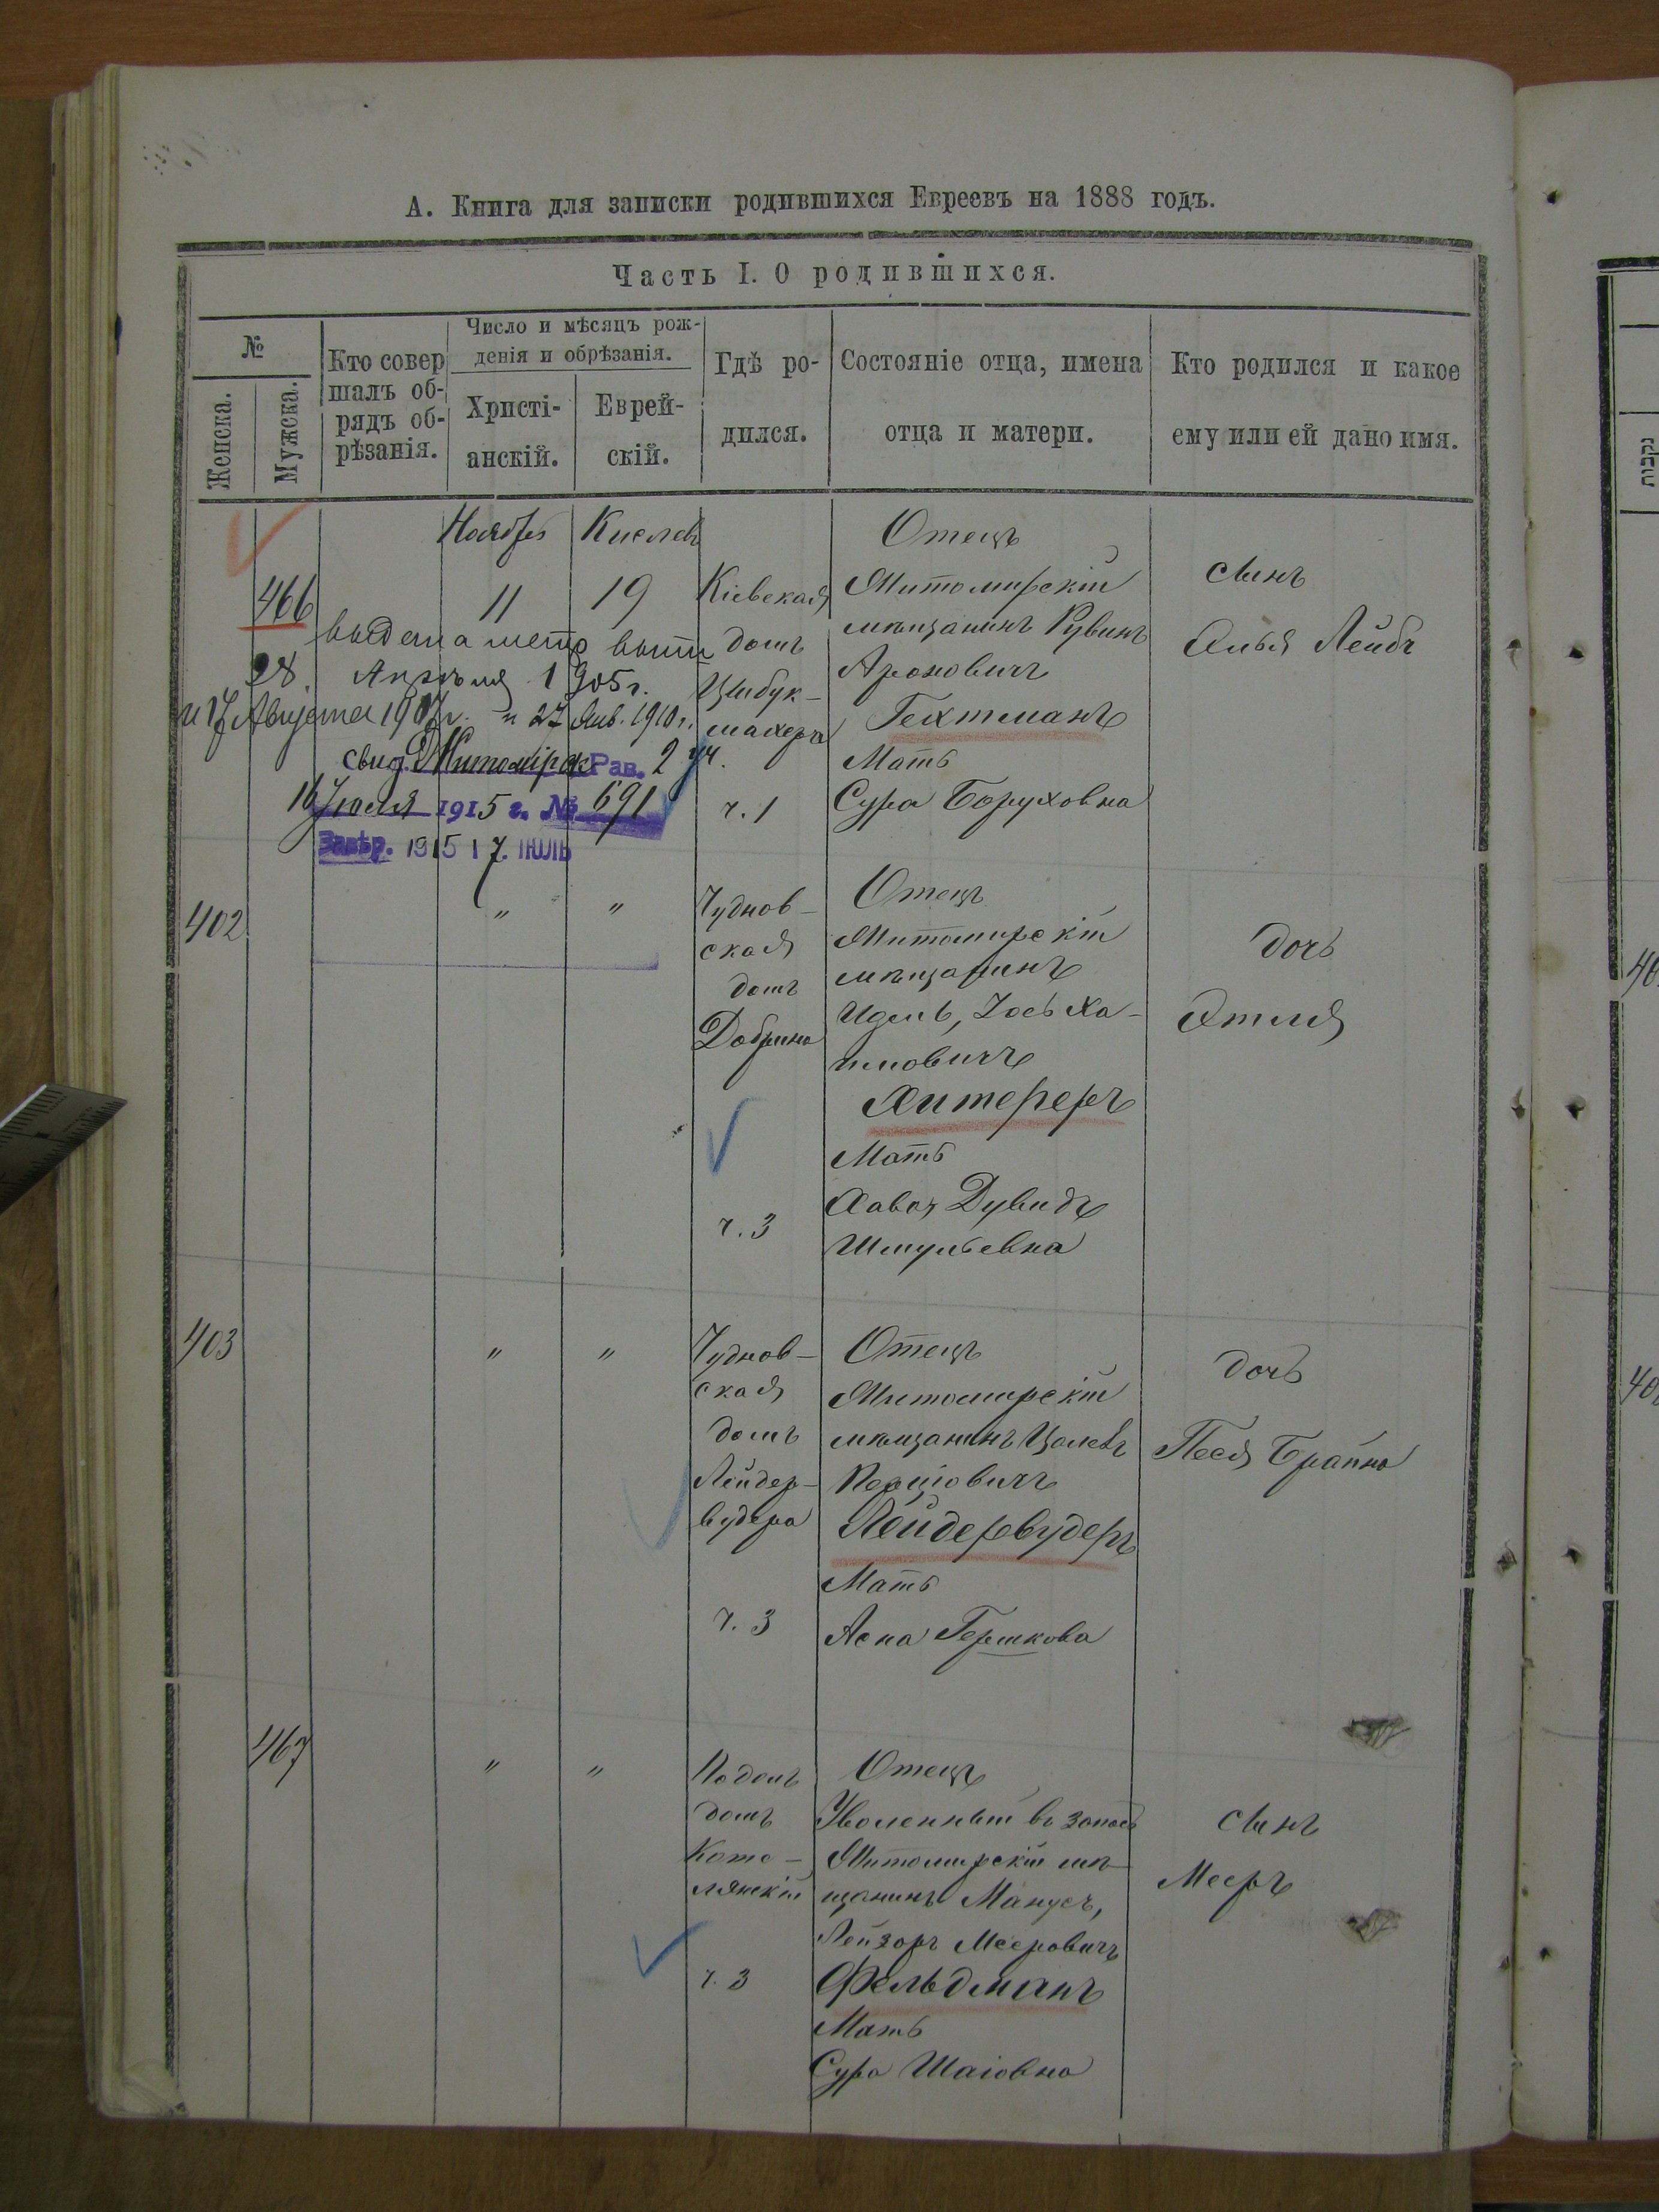 А. Книга для записки родившихся Евреевъ на 1888 годъ.
Часть I. О родившихся.
№
Женска.
Мужска.
Кто совер
шалъ об-
рядъ об-
рѣзанія.
Число и мѣсяцъ рож-
денія и обрѣзанія.
Христі-
анскій.
Еврей-
скій.
Гдѣ ро-
дился.
Состояніе отца, имена
отца и матери.
Кто родился и какое
ему или ей дано имя.
466
Ноябрь
11
Кислевъ
19
выдана метр выпи
28 Апрѣля 1905 г.
и 17 Августа 1907 г. и 27 Янв. 1910 г.
свид. Житомірск Рав. 2 уч.
16 Іюля 1915 г. № 691
Завѣр. 1915 17. ІЮЛЬ
Кіевская
домъ
Цибук-
махера
ч. 1
Отецъ
Житомирскій
мѣщанинъ Рувинъ
Ароновичъ
Гехтманъ
Мать
Сура Боруховна
сынъ
Лейбъ
402
"
"
Чуднов-
ская
домъ
Добрина
ч. 3
Отецъ
Житомирскій
мѣщанинъ
Идель, Іось Ха-
имовичъ
Хитереръ
Мать
Хава, Дувидъ
Шмульевна
дочь
Этля
403
"
"
Чуднов-
ская
домъ
Лейдер-
вудера
ч. 3
Отецъ
Житомирскій
мѣщанинъ
Лейдервудеръ
Мать
Асна Гершкова
дочь
Песя Брайна
467
"
"
Подолъ
домъ
Коте-
лянскій
ч. 3
Отецъ
Уволенный въ запасъ
Житомирскій мѣ-
щанинъ Манусъ,
Лейзоръ Мееровичъ
Фельдманъ
Мать
Сура Шаіовна
сынъ
Мееръ
נקבות